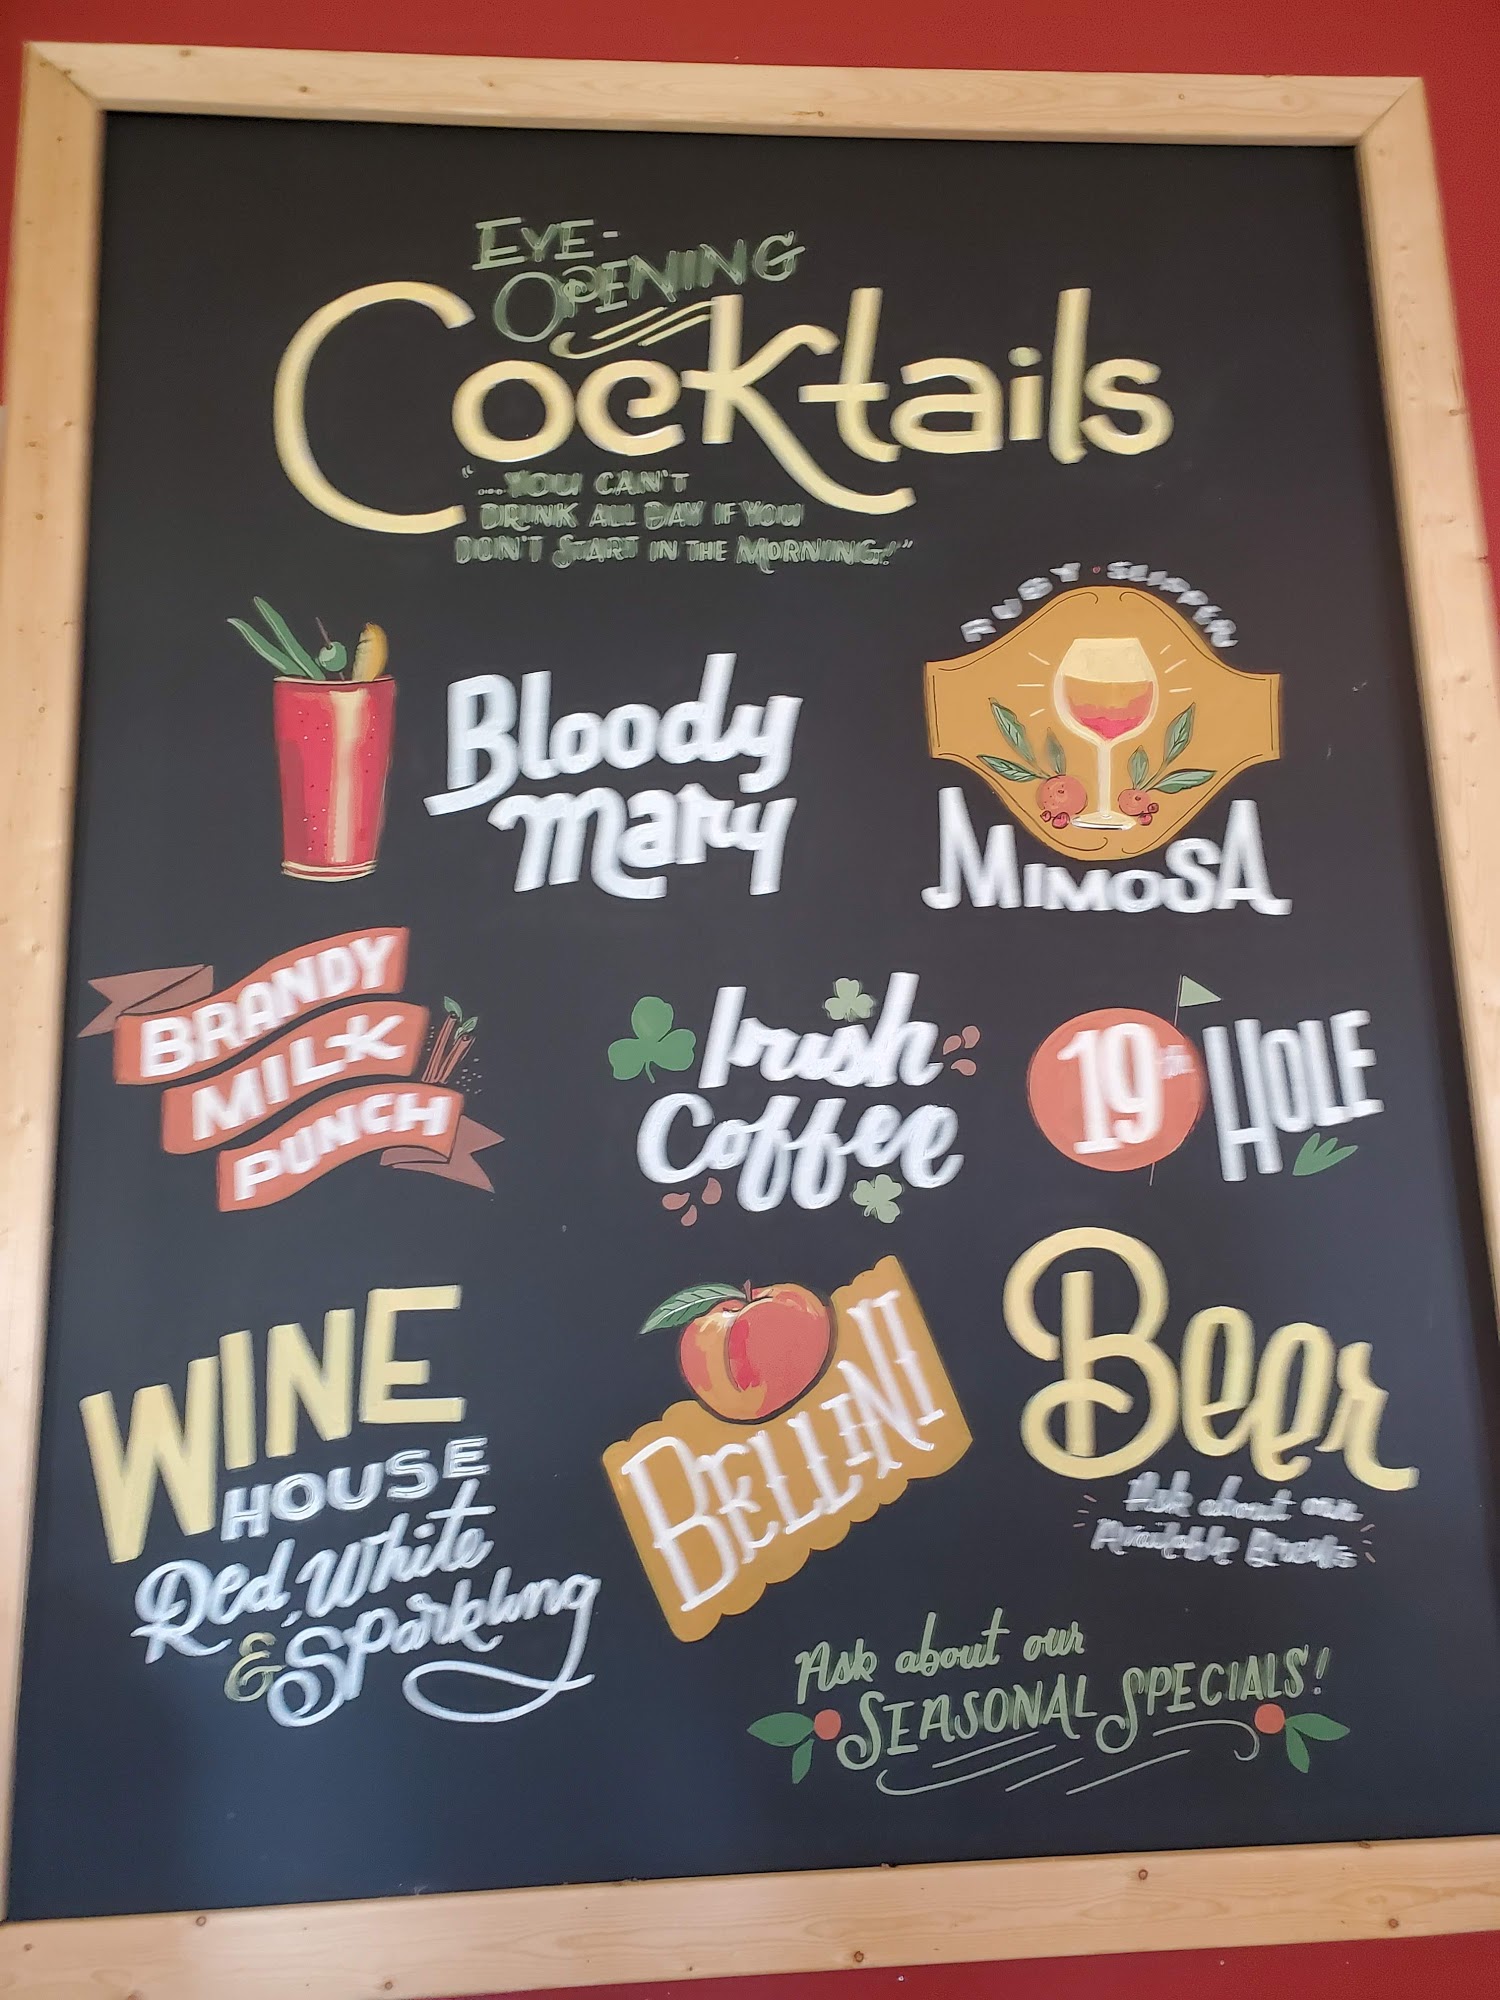 EYE-
OPENING
Cocktails
"...YOU CAN'T
DRINK ALL DAY IF YOU
DON'T START IN THE MORNING!"
Bloody
Mary
RUBY · SLIPPER
MIMOSA
BRANDY
MILK
PUNCH
Irish
Coffee
19th HOLE
WINE
HOUSE
Red, White
& Sparkling
BELLINI
Beer
Ask about our
Available Brews
Ask about our
SEASONAL SPECIALS!